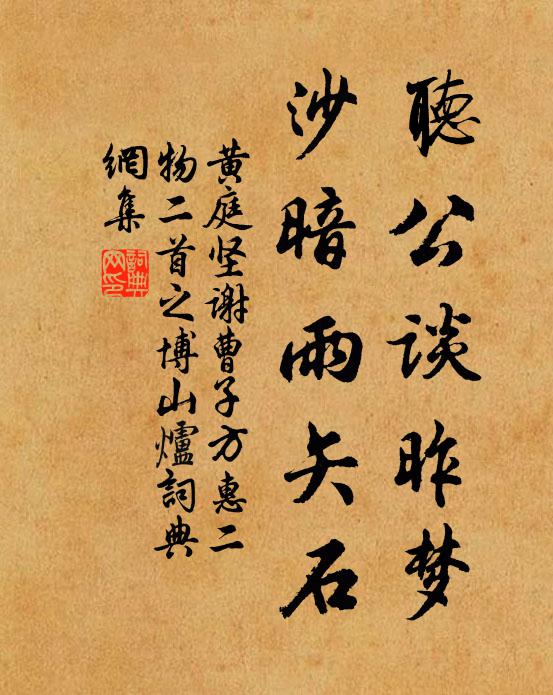 聽公谈昨梦
沙暗雨矢石
黄庭坚谢曹子方惠二
物二首之博山爐詞典
網集
詞典
网印